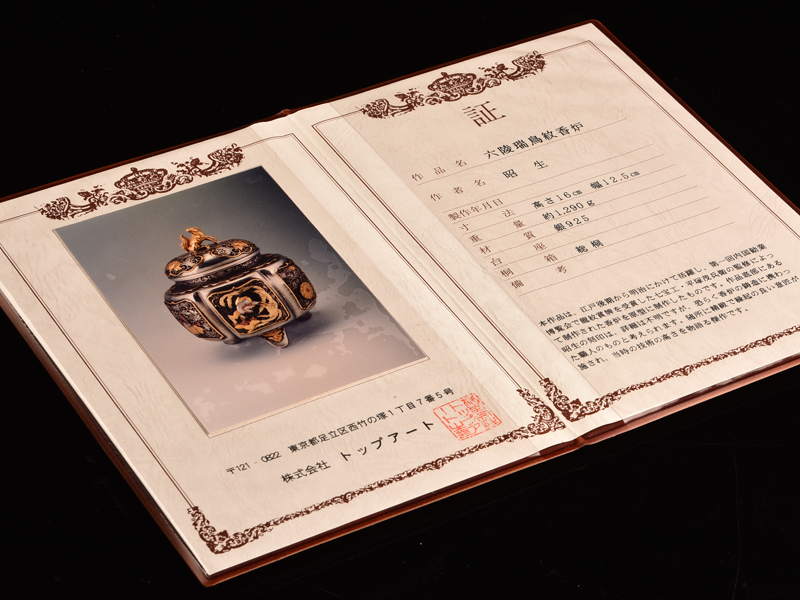 〒121-0822 東京都足立区西竹の塚1丁目7番5号
株式会社 トップアート
証
作品名 六陵瑞鳥紋香炉
作者名 昭生
製作年月日
寸法 高さ16cm 幅12.5cm
重量 約1,290g
材質 銀925
台座
桐箱 総桐
備考
本作品は、江戸後期から明治にかけて活躍し、第一回内国勧業
博覧会で龍紋賞牌を受賞した七宝工、平塚茂兵衛の監修によっ
て制作された香炉を原型に制作したものです。作品底部にある
昭生の刻印は、詳細は不明ですが、恐らく香炉の鋳造に携わっ
た職人のものと考えられます。随所に繊細で縁起の良い意匠が
施され、当時の技術の高さを物語る傑作です。